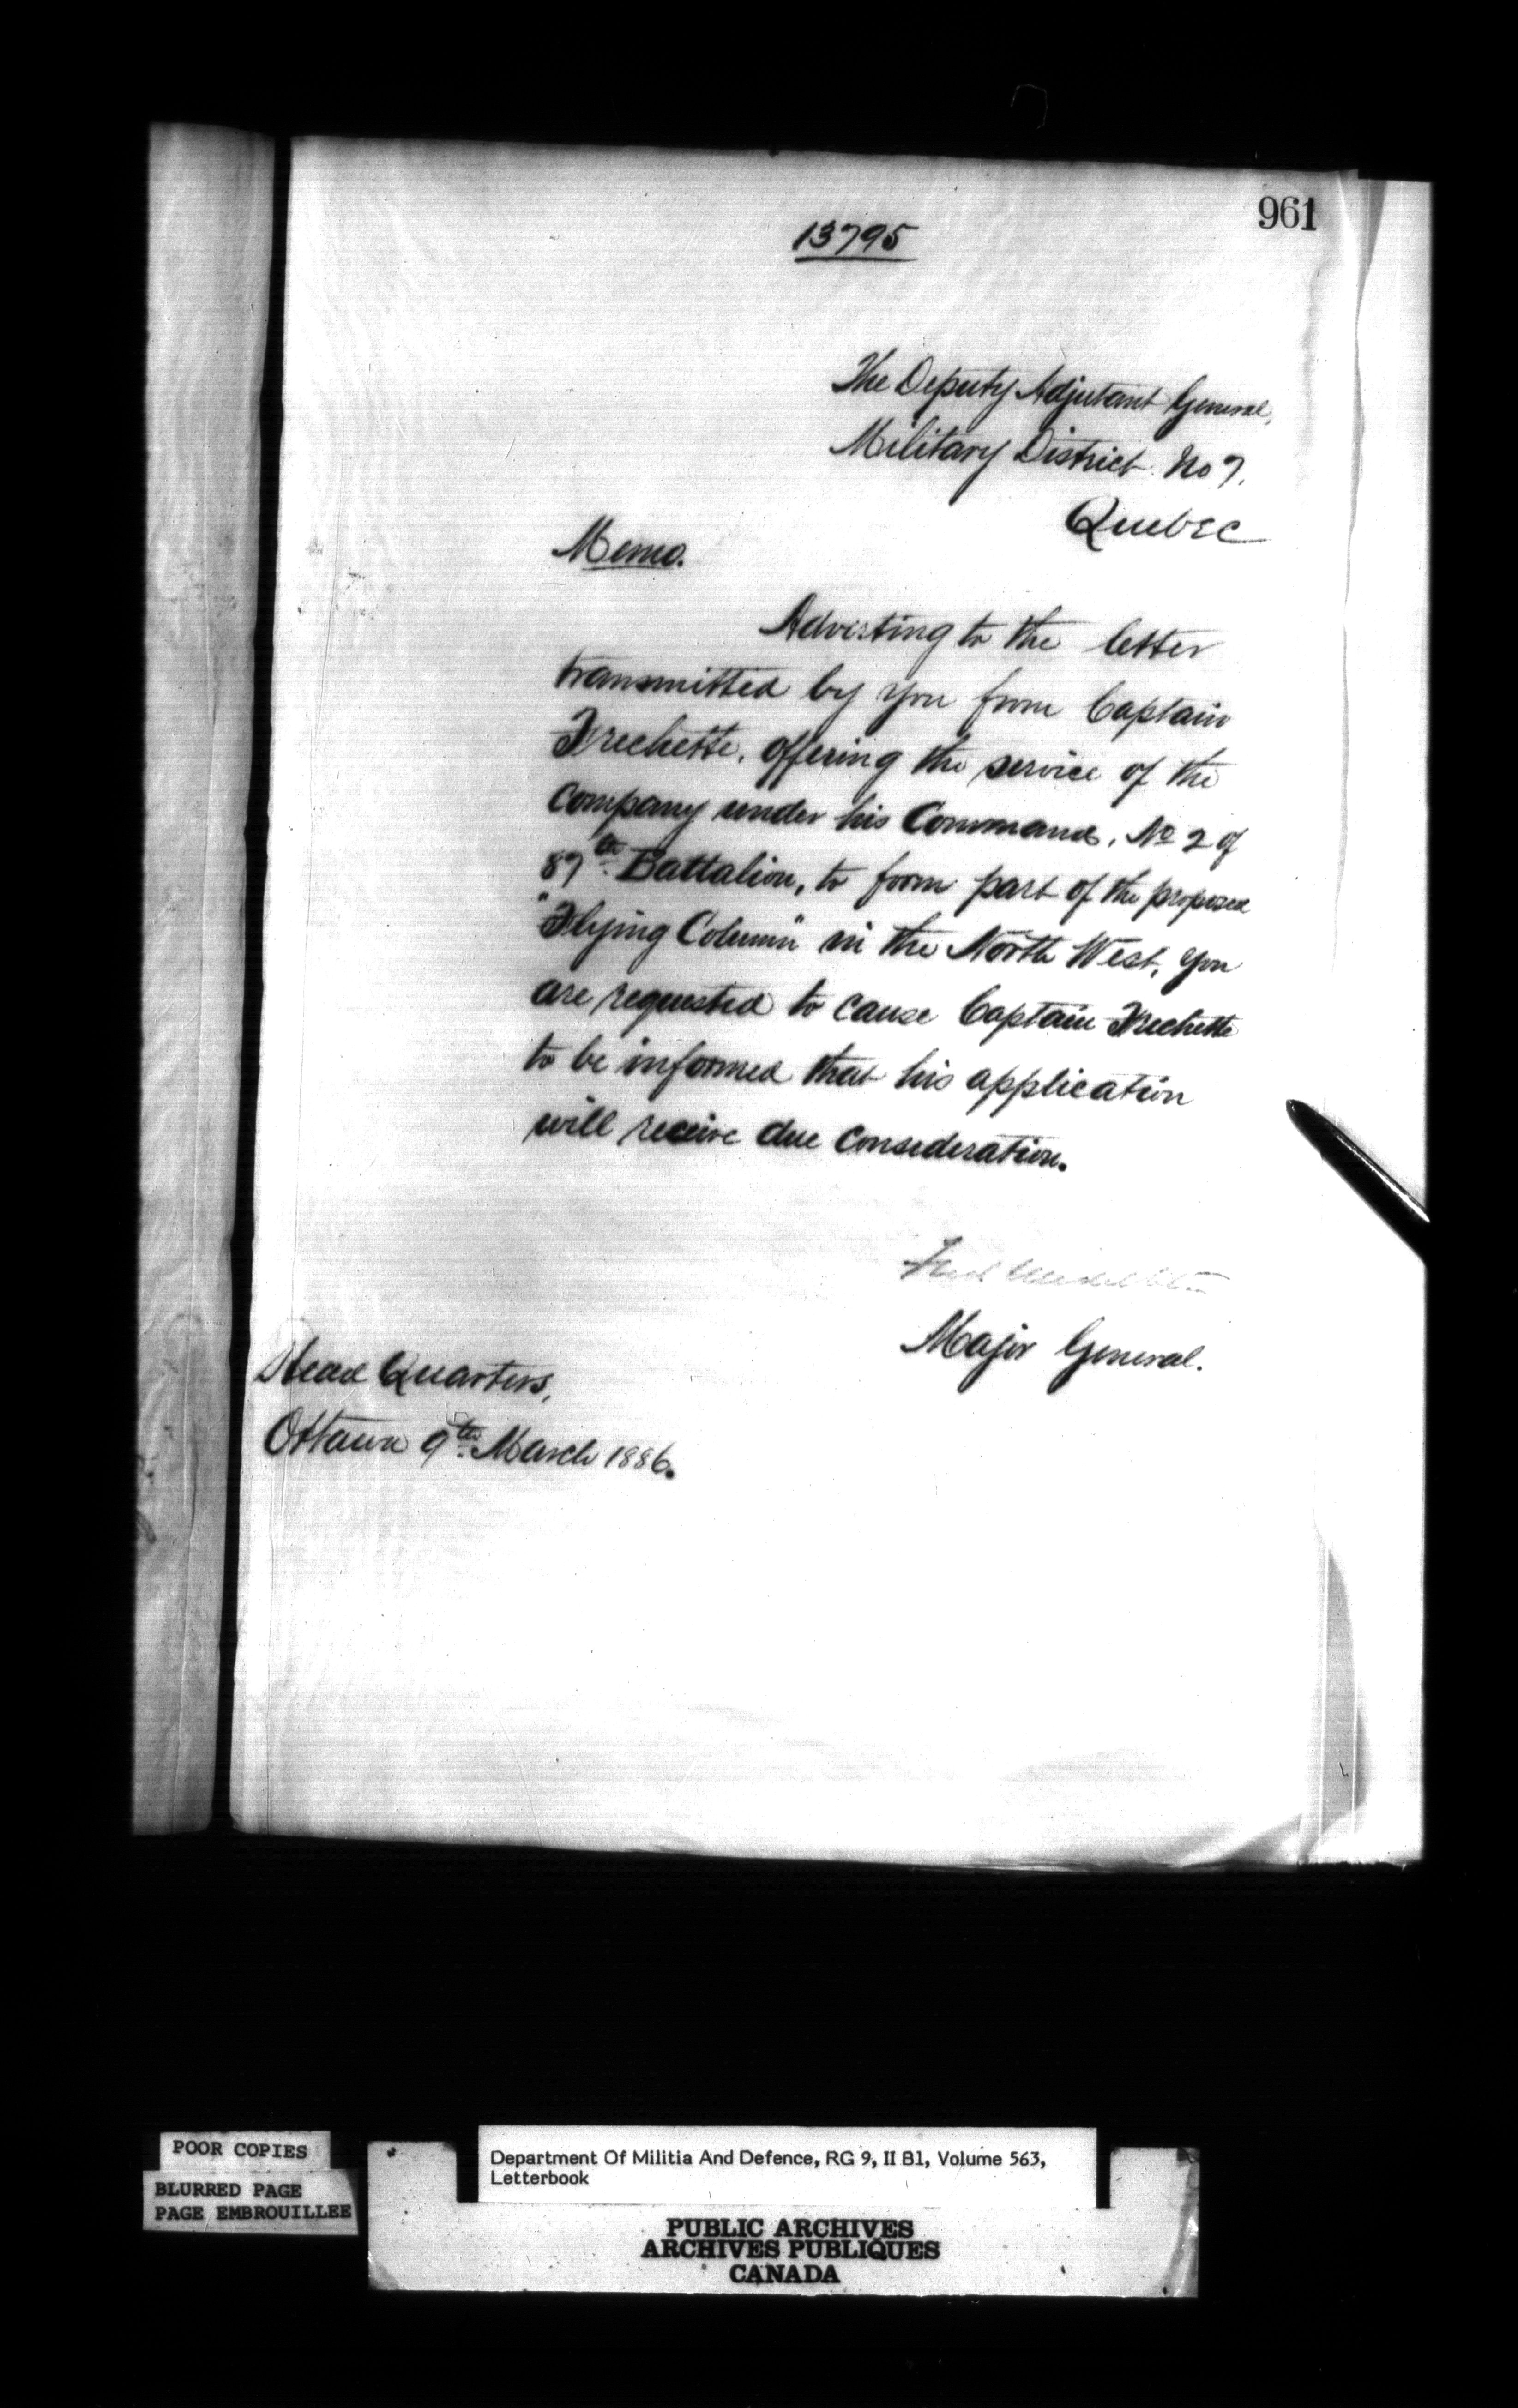 961
13795
The Deputy Adjutant General,
Military District No 7.
Quebec
Memo.
Adverting to the letter
transmitted by you from Captain
Frechette, offering the service of the
Company under his Command, No 2 of
87th Battalion, to form part of the proposed
"Flying Column" in the North West, you
are requested to cause Captain Frechette
to be informed that his application
will receive due consideration.
Fred Middleton
Major General.
Head Quarters,
Ottawa 9th March 1886.
POOR COPIES
BLURRED PAGE
PAGE EMBROUILLEE
Department Of Militia And Defence, RG 9, II B1, Volume 563,
Letterbook
PUBLIC ARCHIVES
ARCHIVES PUBLIQUES
CANADA